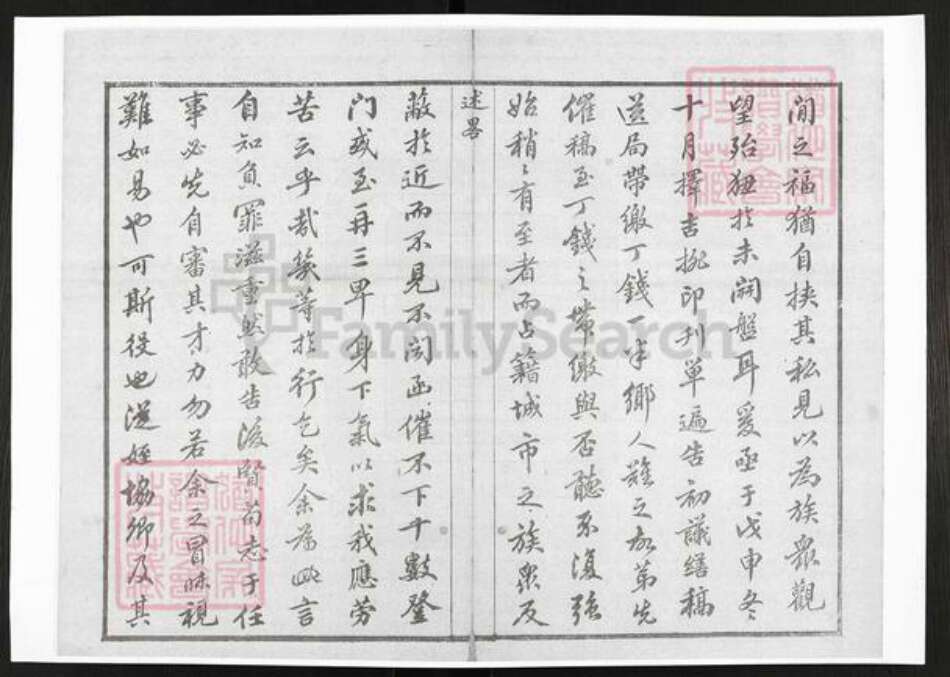 閒之福猶自挾其私見以為族眾觀
望殆狃於未開盤耳爰亟于戊申冬
十月擇吉挑印刊單遍告初議繕稿
送局帶繳丁錢一半鄉人難之知第先
催稿至丁錢之帶繳與否聽不復強
始稍〻有至者而占籍城市之族眾反
述畧
蔽於近而不見不聞函催不下十數登
門或至再三卑身下氣以求我應勞
苦云乎哉幾等於行乞矣余為此言
自知負罪滋重然敢告後賢苟志于任
事必先自審其才力勿若余之冒昧視
難如易也可斯役也從姪協卿及其
FamilySearch